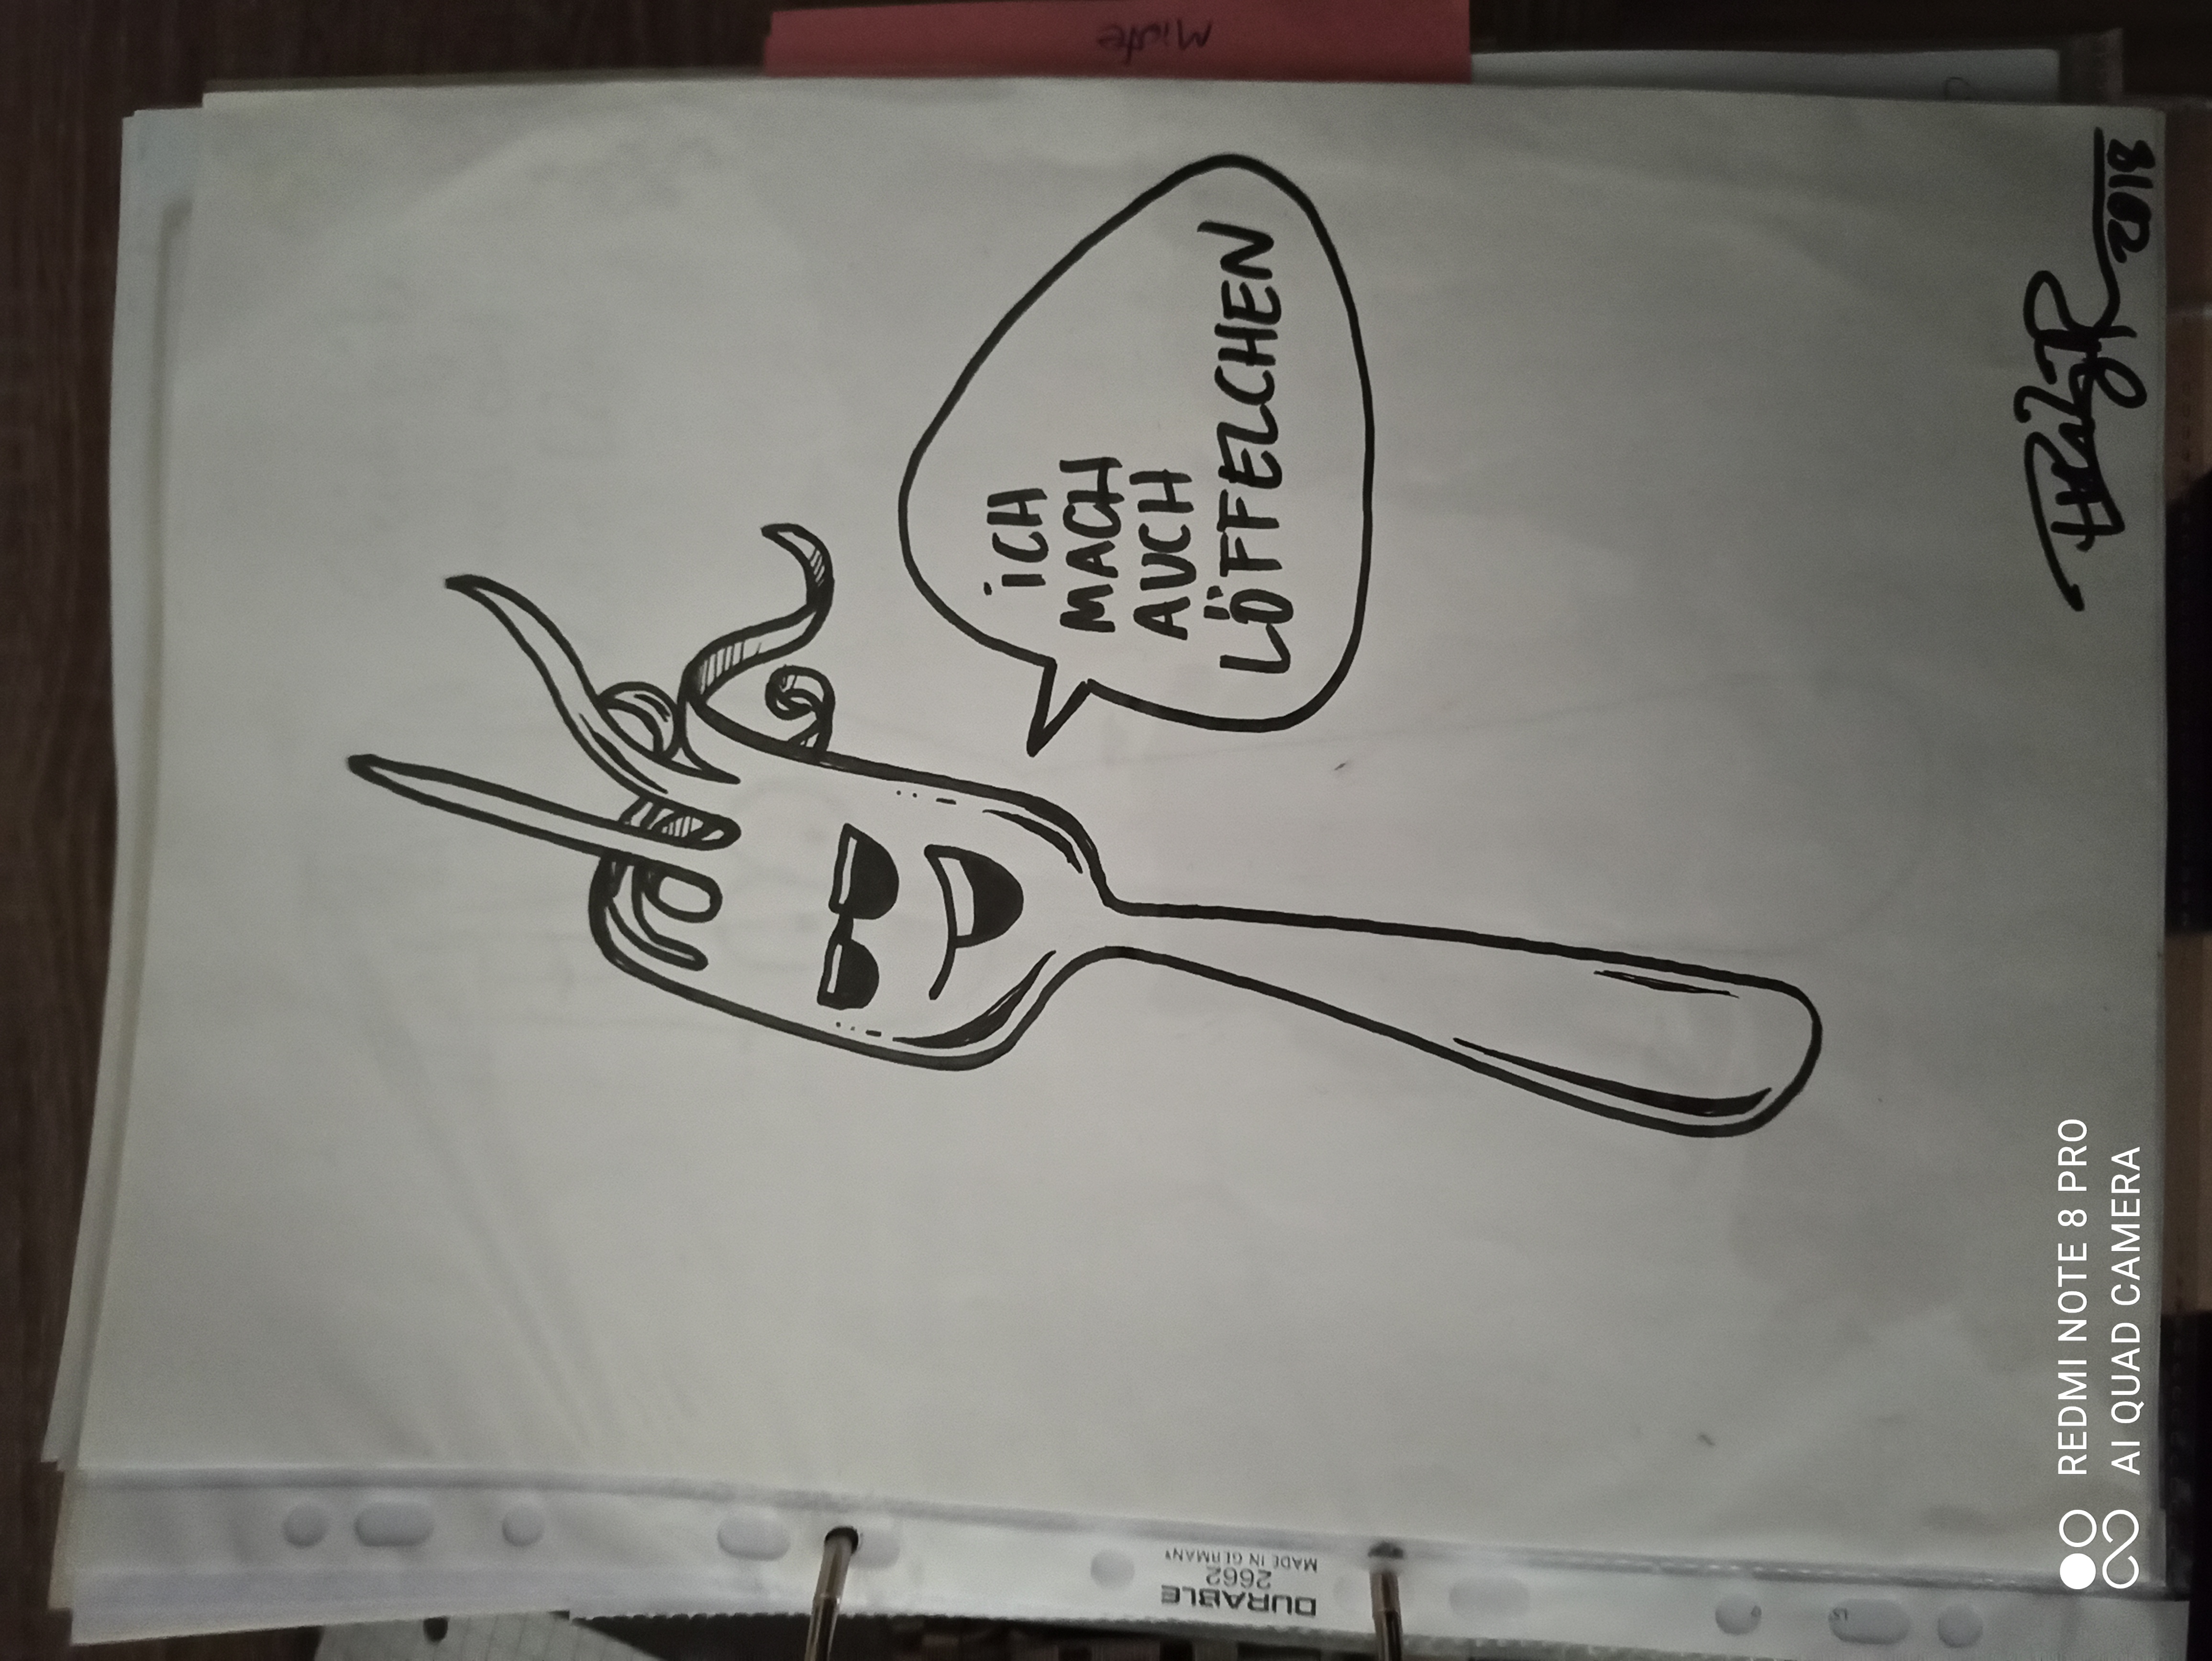 iCH
MACH
AUCH
LÖFFELCHEN
DURABLE
2662
MADE IN GERMANY
Miete
2018
REDMI NOTE 8 PRO
AI QUAD CAMERA